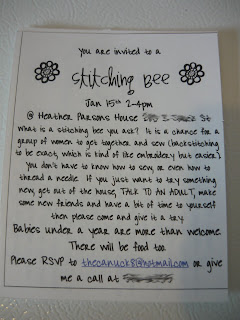 you are invited to a
Stitching Bee
Jan 15th 2-4pm
@ Heather Parsons House St
What is a stitching bee you ask? It is a chance for a
group of women to get together and sew (backstitching
to be exact, which is kind of like embroidery but easier)
you don't have to know how to sew, or even how to
thread a needle. If you just want to try something
new, get out of the house, TALK TO AN ADULT, make
some new friends and have a bit of time to yourself
then please come and give it a try.
Babies under a year are more than welcome.
There will be food too.
Please RSVP to thecanuck81@hotmail.com or give
me a call at